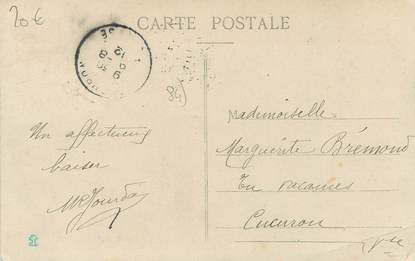 20€
CARTE POSTALE
9 30
9 -8
12
84
Mademoiselle
Marguerite Brémond
En vacances
Cucuron
Vse
Un affectueux
baiser
MR Jourdan